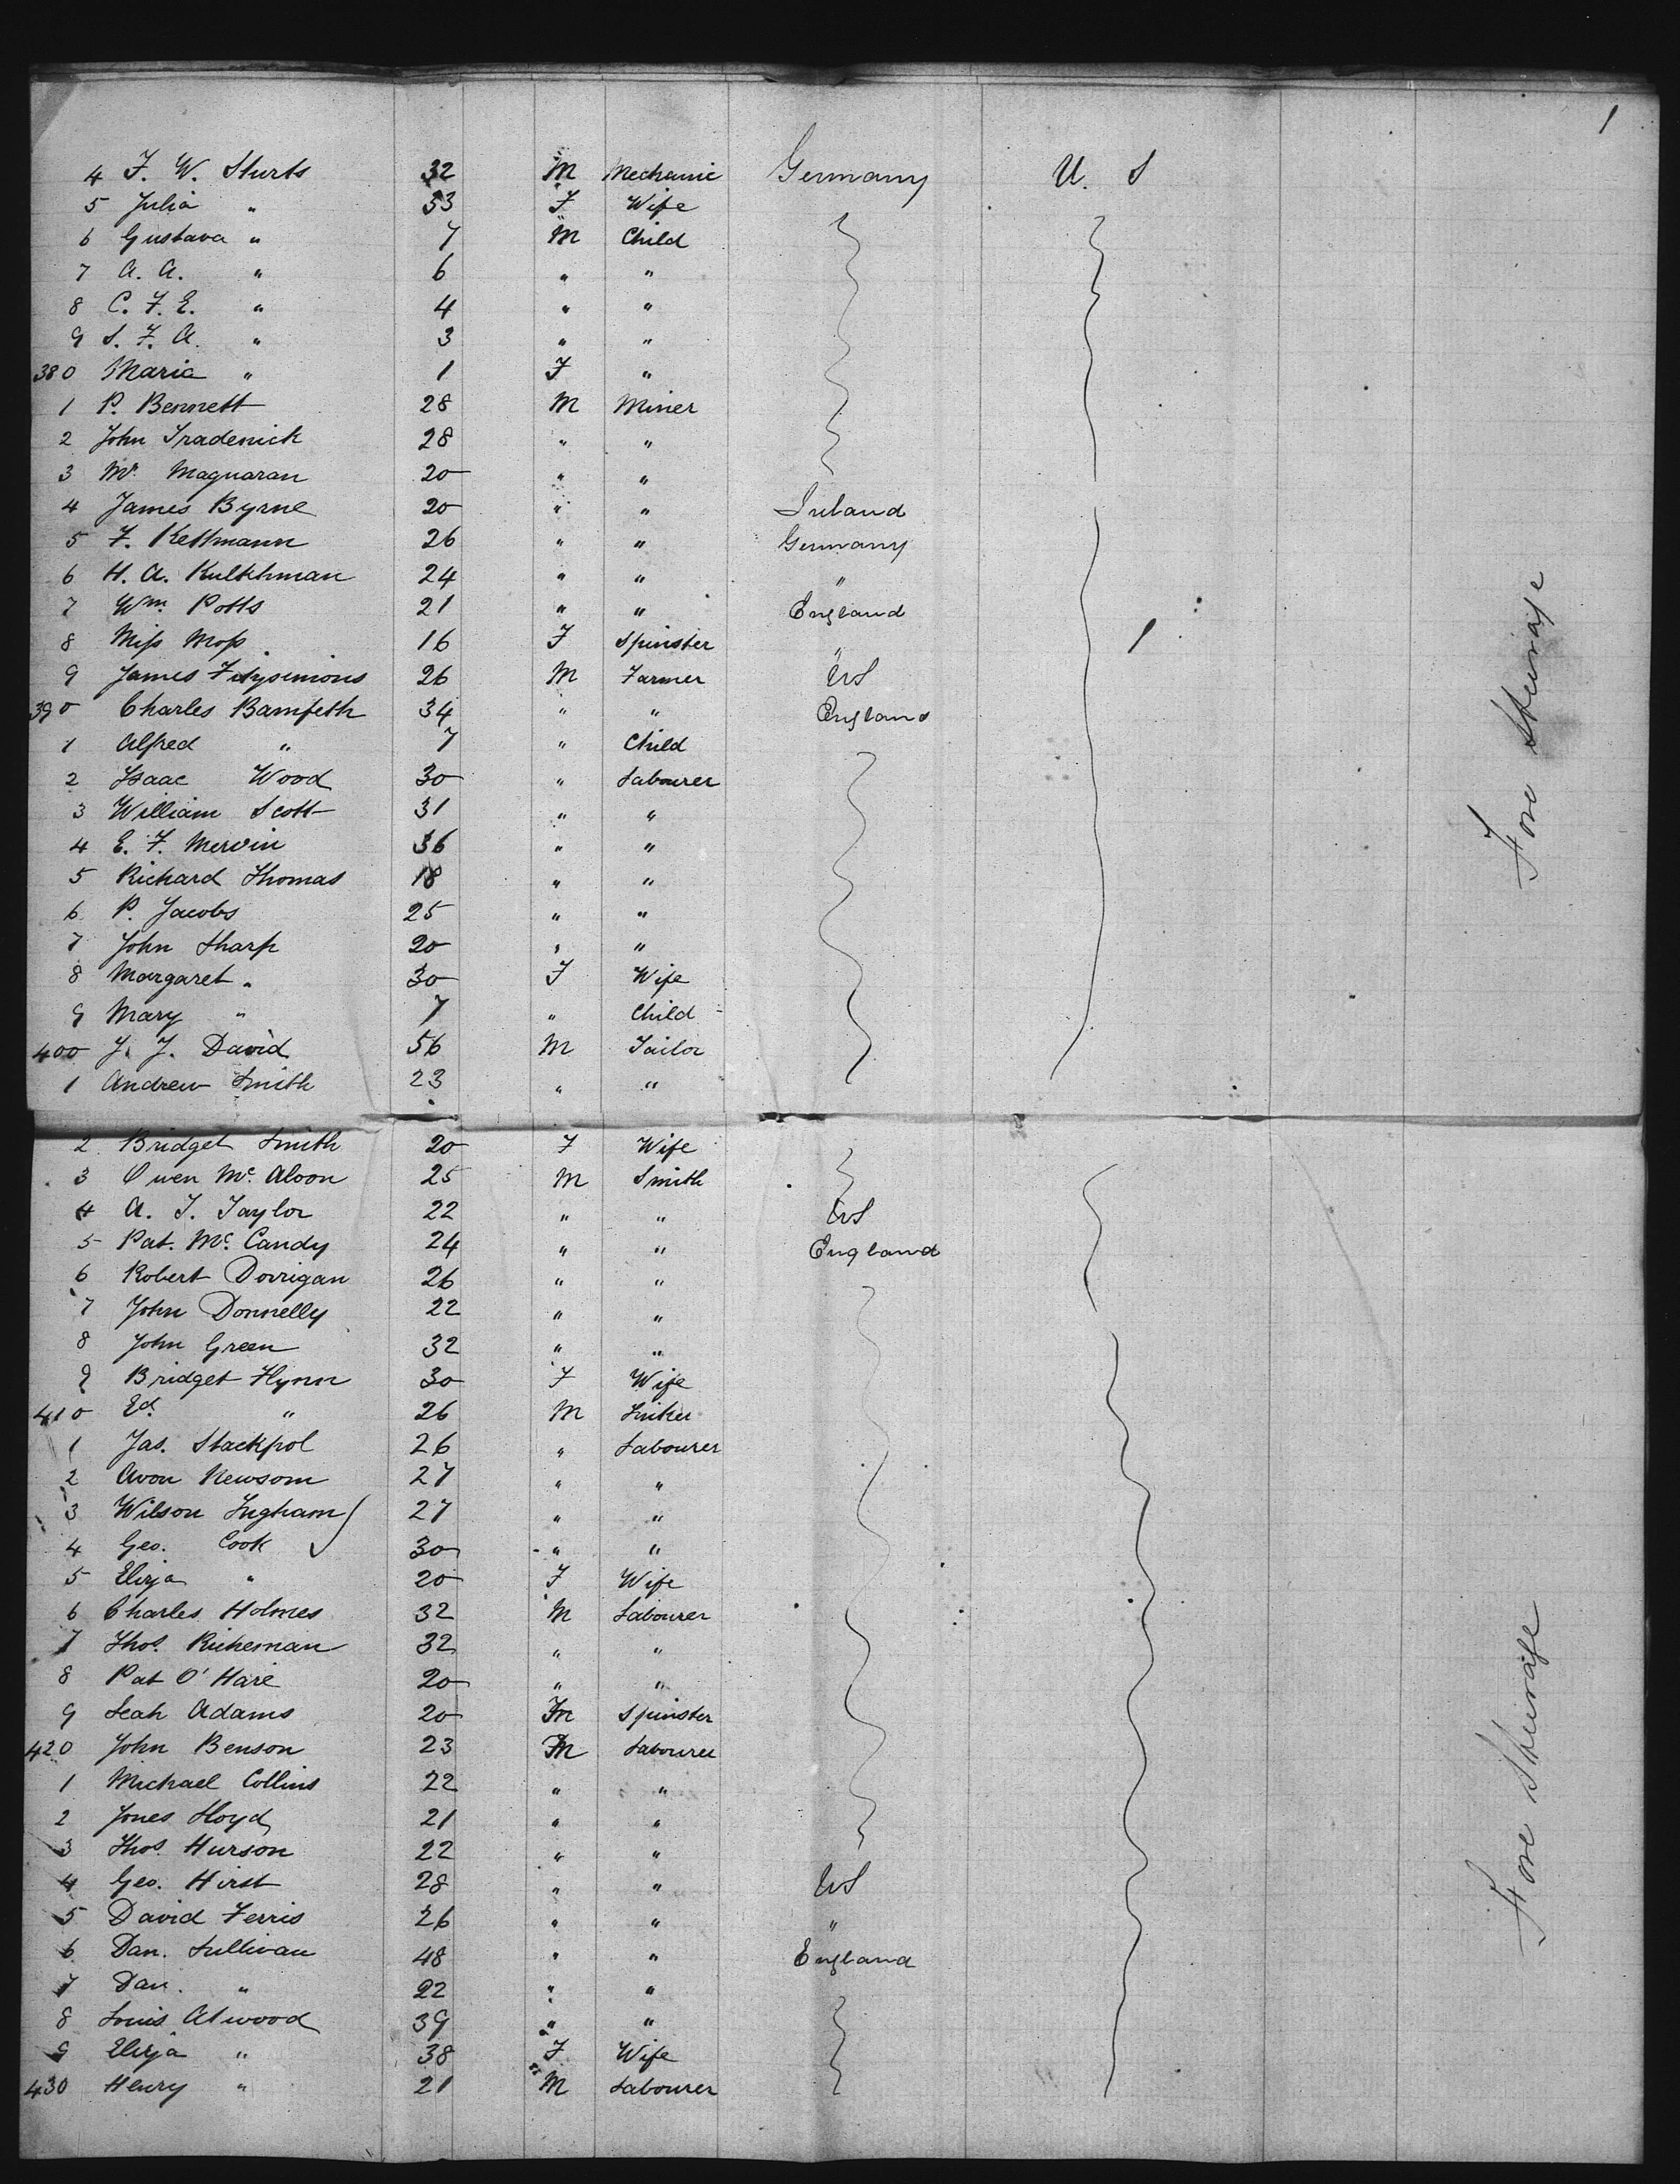 1
4 F. W. Sturts 32 M Mechanic Germany U. S
5 Julia " 33 F Wife
6 Gustava " 7 M Child
7 A. A. " 6 " "
8 C. F. E. " 4 " "
9 S. F. A. " 3 " "
380 Maria " 1 F "
1 P. Bennett 28 M Miner
2 John Tradenick 28 " "
3 Mr Maguaran 20 " "
4 James Byrne 20 " " Ireland
5 F. Kettmann 26 " " Germany
6 H. A. 24 " " "
7 Wm. Potts 21 " " England
8 Miss Moss 16 F Spinster "
9 James 26 M Farmer US
390 Charles Bamfeth 34 " " England
1 Alfred " 7 " Child
2 Isaac Wood 30 " Labourer
3 William Scott 31 " "
4 E. F. Mervin 36 " "
5 Richard Thomas 18 " "
6 P. Jacobs 25 " "
7 John Sharp 20 " "
8 Margaret " 30 F Wife
9 Mary " 7 " Child
400 J. J. David 56 M Tailor
1 Andrew Smith 23 " "
Fore Steerage
2 Bridget Smith 20 F Wife
3 Owen Mc. Aloon 25 M Smith
4 A. T. Taylor 22 " " US
5 Pat. Mc. Candy 24 " " England
6 Robert Dorrigan 26 " "
7 John Donnelly 22 " "
8 John Green 32 " "
9 Bridget Flynn 30 F Wife
410 Ed. " 26 M
1 Jas. Stackpol 26 " Labourer
2 Avon Newsom 27 " "
3 Wilson Ingham 27 " "
4 Geo. Cook 30 " "
5 Eliza " 20 F Wife
6 Charles Holmes 32 M Labourer
7 Thos. Richeman 32 " "
8 Pat O'Hare 20 " "
9 Leah Adams 20 Spinster
420 John Benson 23 M Labourer
1 Michael Collins 22 " "
2 Jones Lloyd 21 " "
3 Thos. Hurson 22 " "
4 Geo. Hirst 28 " " US
5 David Ferris 26 " " "
6 Dan. Sullivan 48 " " England
7 Dan. " 22 " "
8 Louis Atwood 39 " "
9 Eliza " 38 F Wife
430 Henry " 21 M Labourer
Fore Steerage